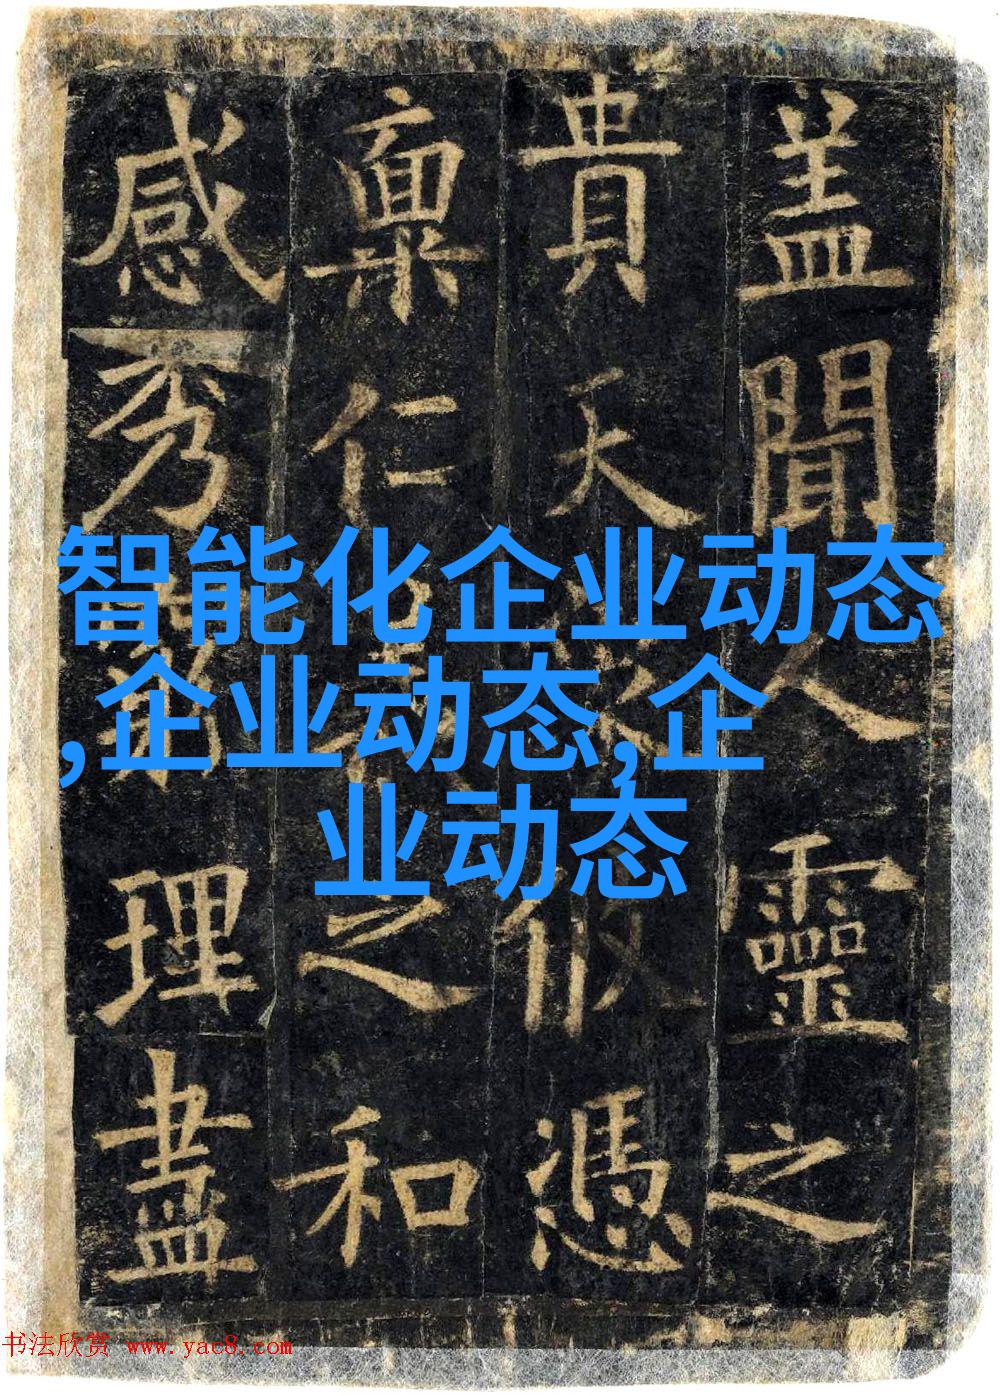 盖聞人靈之
貴天憑
稟仁之和
感秀理盡
智能化企业动态
,企业动态,企
业动态
书法欣赏 www.yac8.com